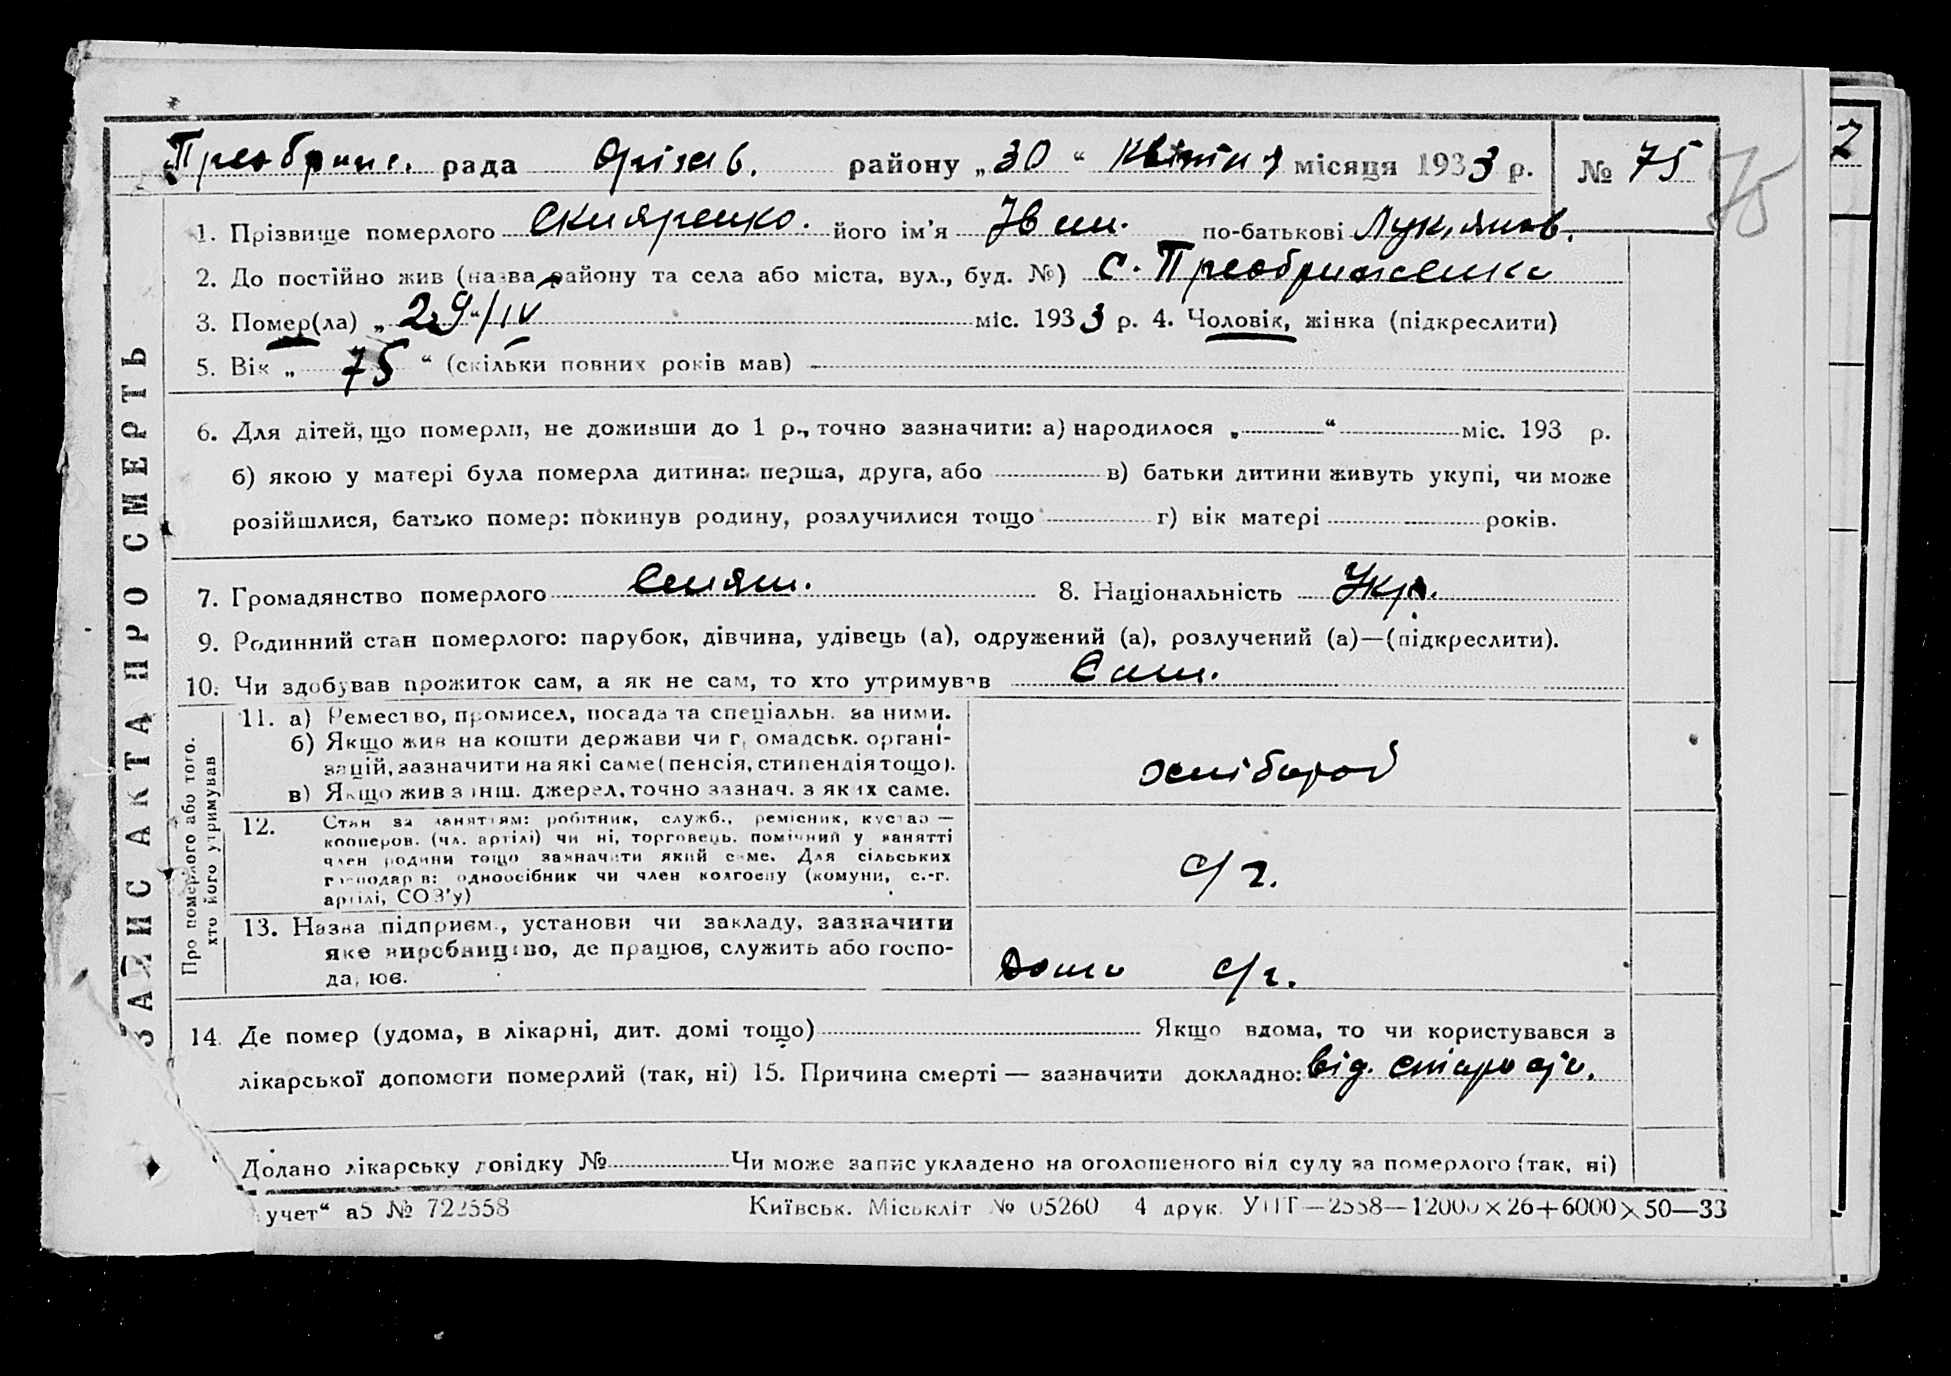 Преображ. рада Оріхів. району „30“ Квітня місяця 1933 р. № 75
75
1. Прізвище померлого Скляренко. його ім’я Іван. по-батькові Лук,янов.
2. До постійно жив (назва району та села або міста, вул., буд. №) с. Преображенка
3. Помер(ла) „29“/IV міс. 1933 р. 4. Чоловік, жінка (підкреслити)
5. Вік „75“ (скільки повних років мав)
6. Для дітей, що померли, не доживши до 1 р., точно зазначити: а) народилося „ “ міс. 193 р.
б) якою у матері була померла дитина: перша, друга, або в) батьки дитини живуть укупі, чи може
розійшлися, батько помер: покинув родину, розлучилися тощо г) вік матері років.
7. Громадянство померлого 8. Національність Укр.
9. Родинний стан померлого: парубок, дівчина, удівець (а), одружений (а), розлучений (а)—(підкреслити).
10. Чи здобував прожиток сам, а як не сам, то хто утримував Сам.
ЗАПИС АКТА ПРО СМЕРТЬ
Про померлого або того.
хто його утримував
11. а) Ремество, промисел, посада та спеціальн. за ними.
б) Якщо жив на кошти держави чи громадськ. органі-
зацій, зазначити на які саме (пенсія, стипендія тощо).
в) Якщо жив з інш. джерел, точно зазнач. з яких саме.
хлібороб
12. Стан за заняттям: робітник, служб., ремісник, кустар —
кооперов. (чл. артілі) чи ні, торговець, помічний у занятті
член родини тощо зазначити який саме. Для сільських
господарів: одноосібник чи член колгоспу (комуни, с.-г.
артілі, СОЗ’у)
с/г.
13. Назва підприєм., установи чи закладу, зазначити
яке виробництво, де працює, служить або госпо-
дарює.
дома с/г.
14. Де помер (удома, в лікарні, дит. домі тощо) Якщо вдома, то чи користувався з
лікарської допомоги померлий (так, ні) 15. Причина смерті — зазначити докладно: від. старости.
Додано лікарську довідку № Чи може запис укладено на оголошеного від суду за померлого (так, ні)
учет“ а5 № 722558 Київськ. Міськліт № 05260 4 друк. УПТ—2558—12000×26+6000×50—33